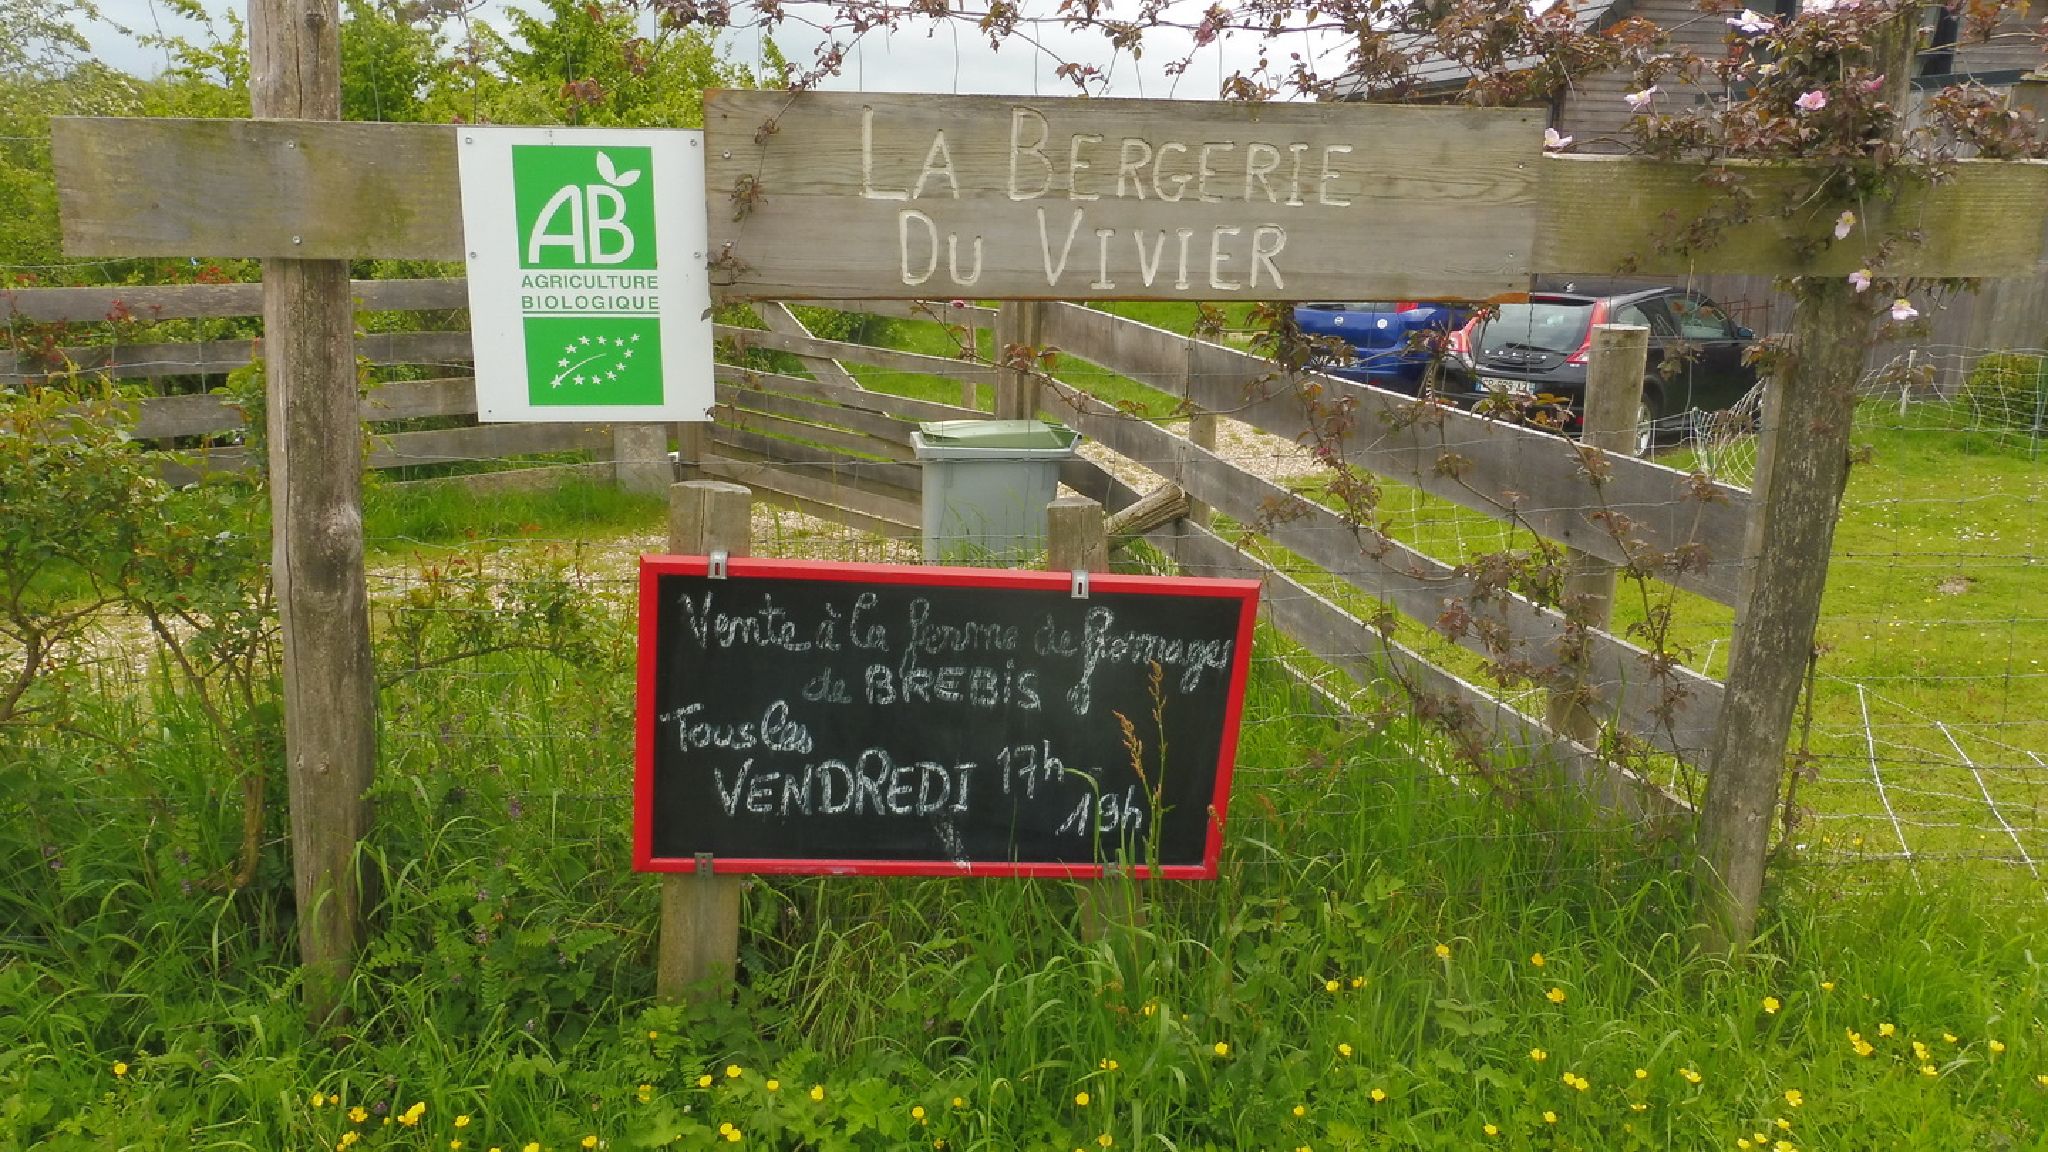 AB
AGRICULTURE
BIOLOGIQUE
LA BERGERIE
DU VIVIER
Vente à la ferme de fromages
de BREBIS
Tous les
VENDREDI 17h
19h